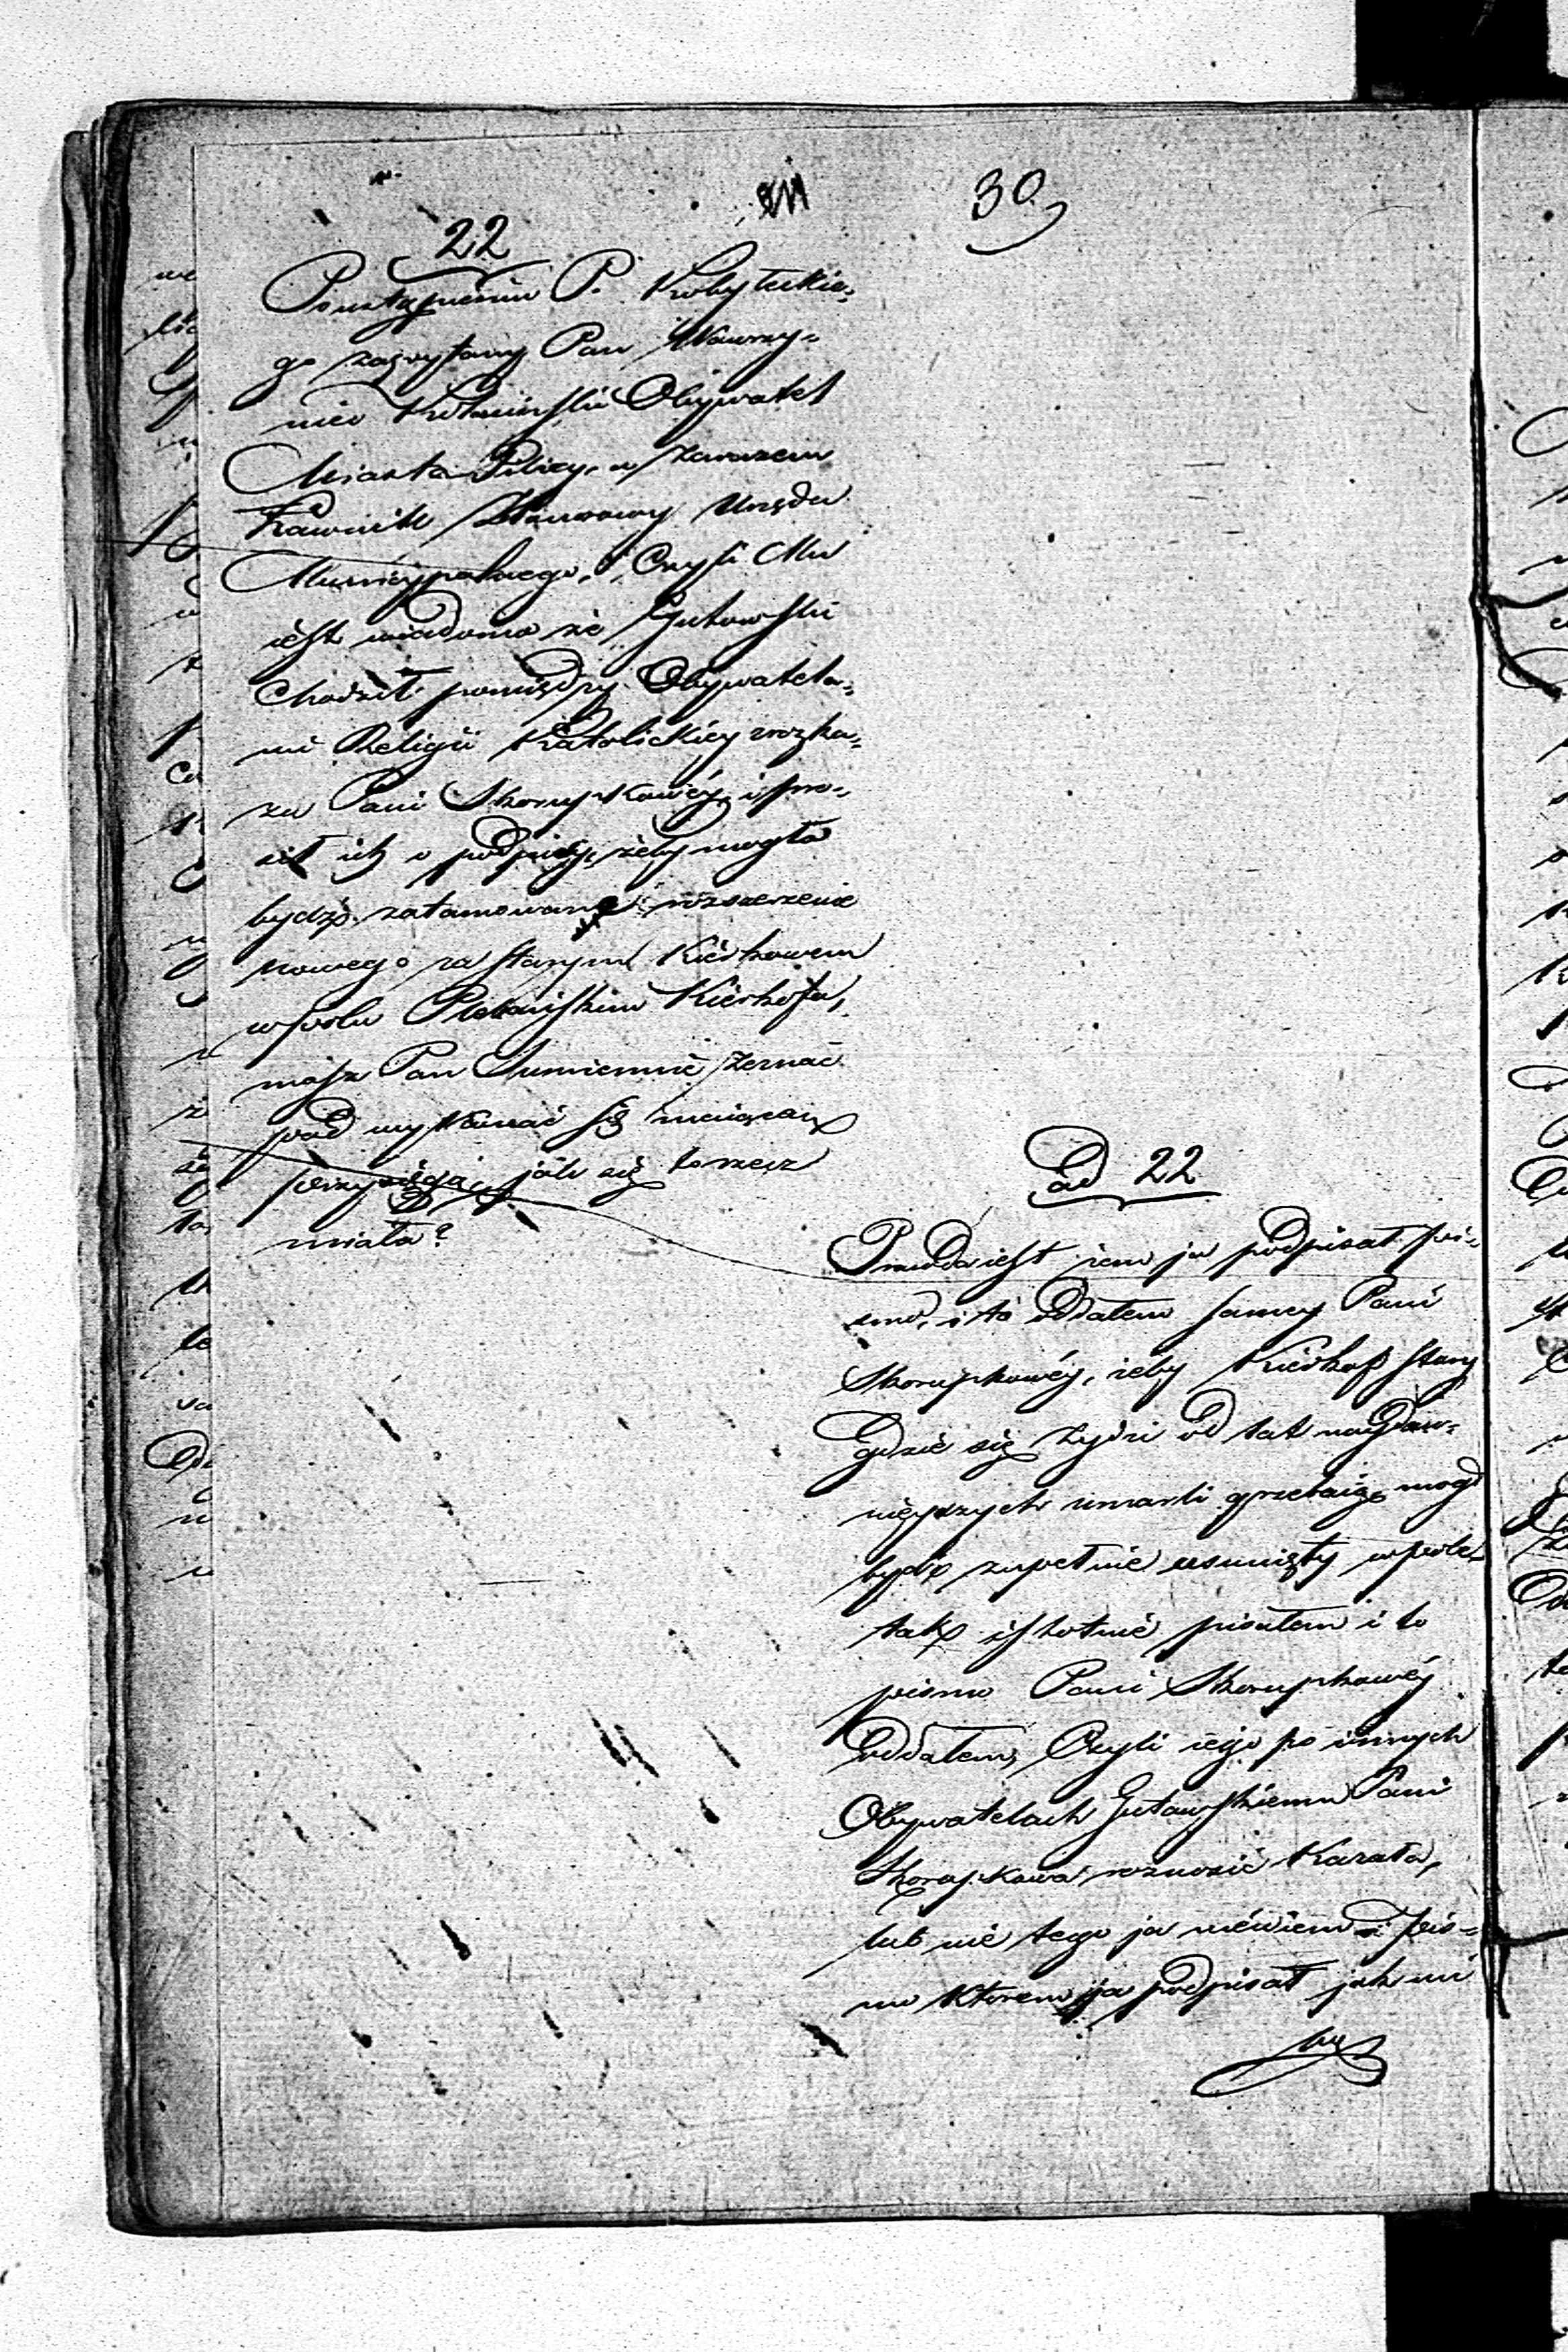 30
22
Poustąpieniu P. Kobyłeckie-
go zapytany Pan Wawrzy-
niec Obywatel
Miasta Pilicy, a zarazem
Ławnik Urzędu
Municypalnego, Czyli Mu
iest wiadomo że Gutowski
Chodził pomiędzy Obywatela-
mi Religii Katolickiey z rozka-
zu Pani Skorupkowéy, i pro-
sił ich o podpisy, żeby mogła
bydź zatamowane rozszerzenie
nowego za starym Kierkowem
w polu Plebańskim Kierkofu,
masz Pan Sumiennie zeznać
pod wykonać się maiącą
przysięgą, jak się ta rzecz
miała?
ad 22
Prawda iest żem ja podpisał pi-
smo, i to oddałem samey Pani
Skorupkowéy, żeby Kierkof stary
gdzie się Żydzi od lat naydaw-
nieyszych umarli grzebaią, mógł
bydź zupełnie usunięty w pole
tak istotnie pisałem i to
pismo Pani Skorupkowéy
oddałem, Czyli iego po innych
Obywatelach Gutowskiemu Pani
Skorupkowa roznosić Kazała,
lub nie tego ja niewiem i pis-
mo którem ja podpisał jak mi